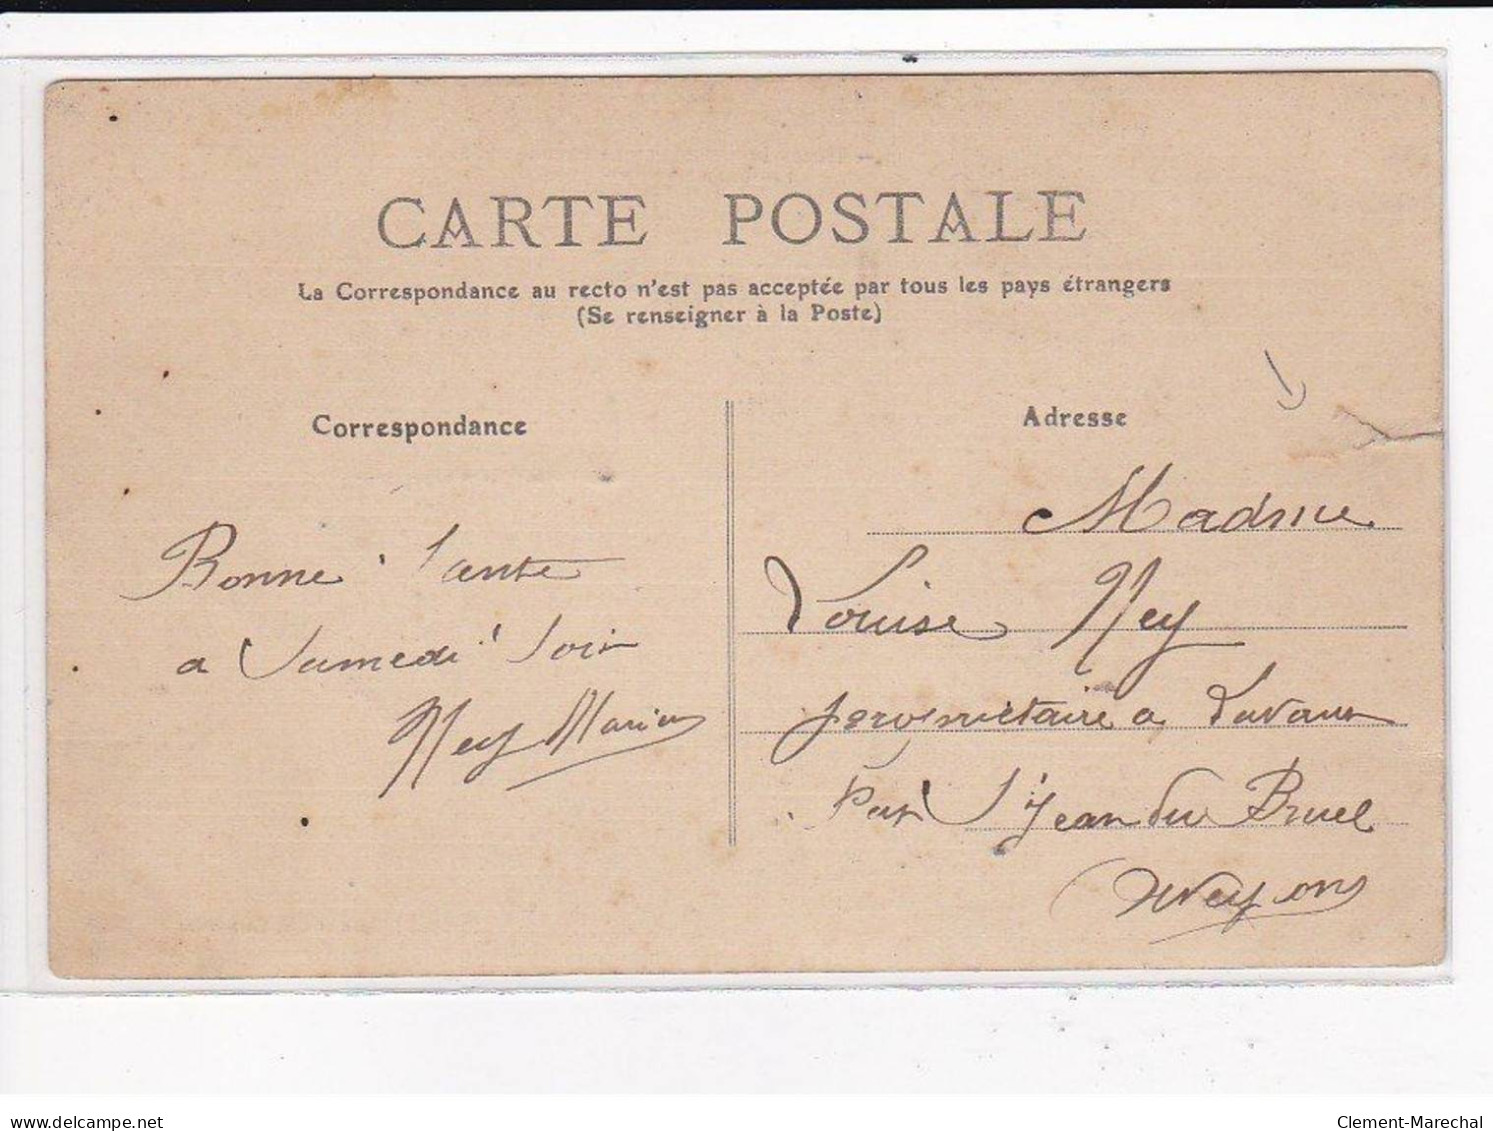 CARTE POSTALE
La Correspondance au recto n'est pas acceptée par tous les pays étrangers
(Se renseigner à la Poste)
Correspondance
Bonne Sante
a Samedi Soir
Ney Marius
Adresse
Madme
Louise Ney
proprietaire a
Par St Jean du Bruel
Aveyron
www.delcampe.net
Clement-Marechal